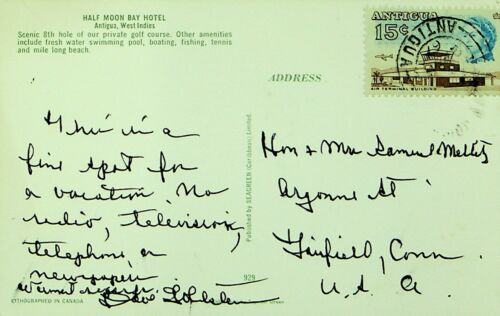 HALF MOON BAY HOTEL
Antigua, West Indies
Scenic 8th hole of our private golf course. Other amenities
include fresh water swimming pool, boating, fishing, tennis
and mile long beach.
ANTIGUA
15c
AIR TERMINAL BUILDING
ANTIGUA
ADDRESS
This is a
fine spot for
a vacation. No
radio, television,
telephone or
newspapers
Dave
Hon & Mrs Samuel
Argonne St
Fairfield, Conn
U. S. A.
Published by SEAGREEN (Caribbean) Limited.
929
LITHOGRAPHED IN CANADA